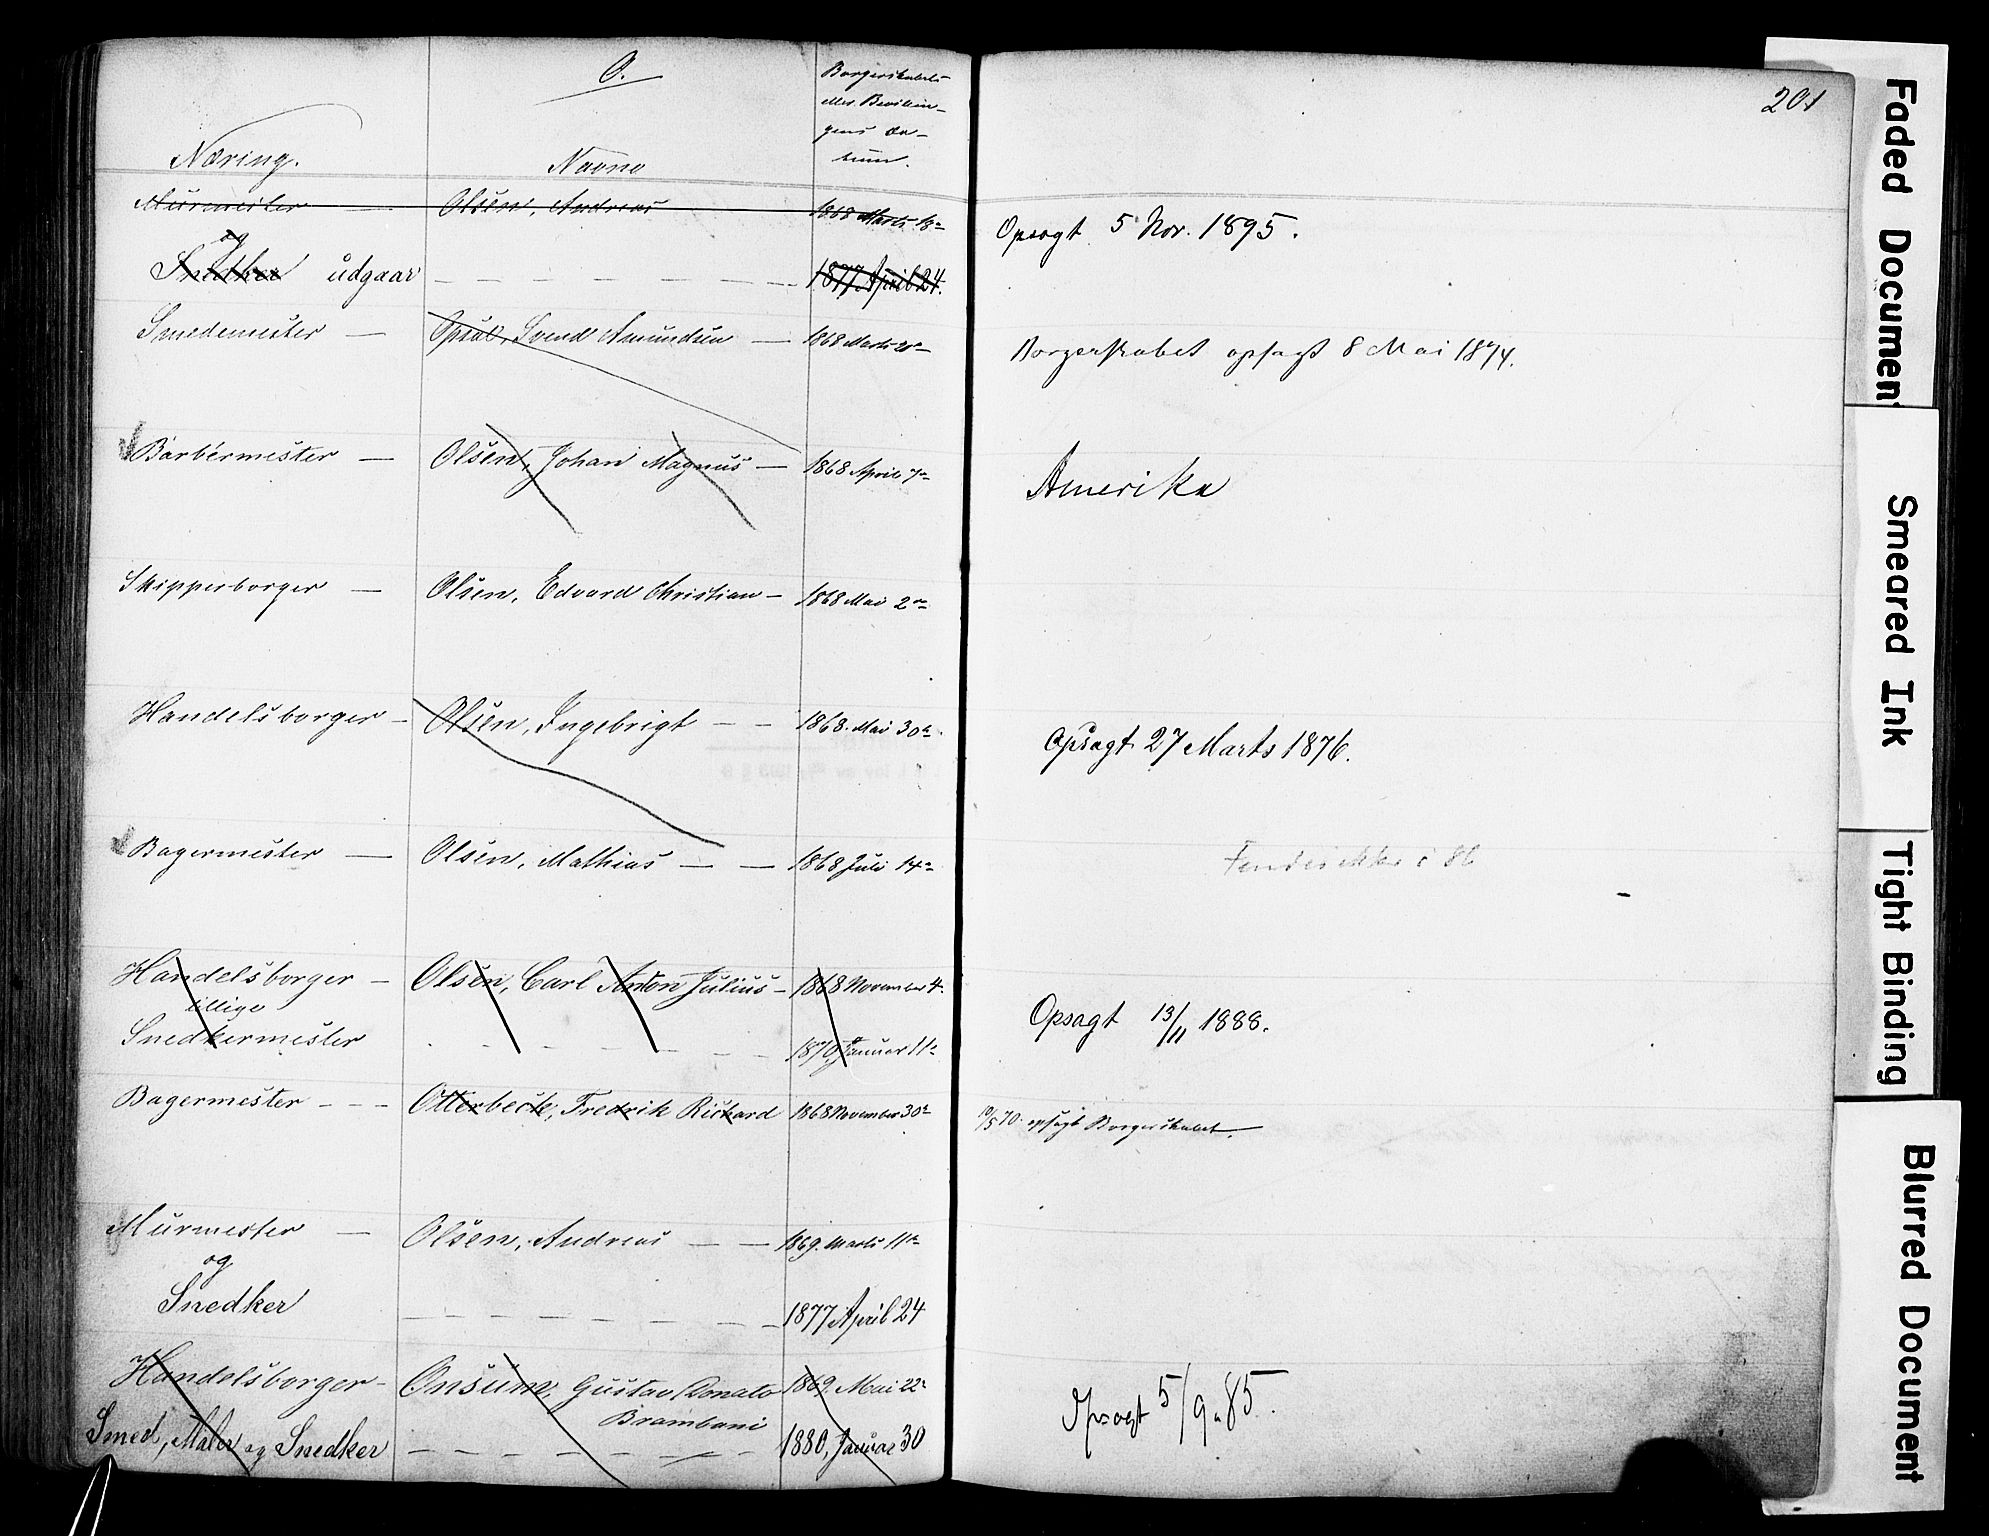 O.
Borgerskabets
eller Bevilin-
gens Da-
tum.
201
Næring. Navne
Murmester — Olsen, Andreas 1868 Marts 18de Opsagt 5 Nov. 1895.
og
Snedker udgaar — — — — — 1877 April 24.
Smedemester — Opsal, Svend Amundsen — 1868 Marts Borgerskabet opsagt 8 Mai 1874.
Barbérmester — Olsen, Johan Magnus — 1868 April 7de Amerika
Skipperborger — Olsen, Edvard Christian — 1868 Mai 2den
Handelsborger — Olsen, Ingebrigt — — 1868. Mai 30te Opsagt 27 Marts 1876.
Bagermester — Olsen, Mathias — — 1868 Juli 14de ikke i 86
Handelsborger — Olsen, Carl Anton Julius — 1868 November 4.
tillige
Snedkermester — — — — — 1870, Januar 11te Opsagt 13/11 1888.
Bagermester — — — Otterbeck, Fredrik Richard 1868 November 30te 10/5 70. opsagt Borgerskabet.
Murmester — Olsen, Andreas — — 1869. Marts 11te
og
Snedker — — — — — — — 1877 April 24
Handelsborger — Onsum, Gustav Donato 1869. Mai 22de Opsagt 5/9 85.
Brambani
Smed, Maler og Snedker — — — — — — 1880, Januar 30
Faded Document
Smeared Ink
Tight Binding
Blurred Document